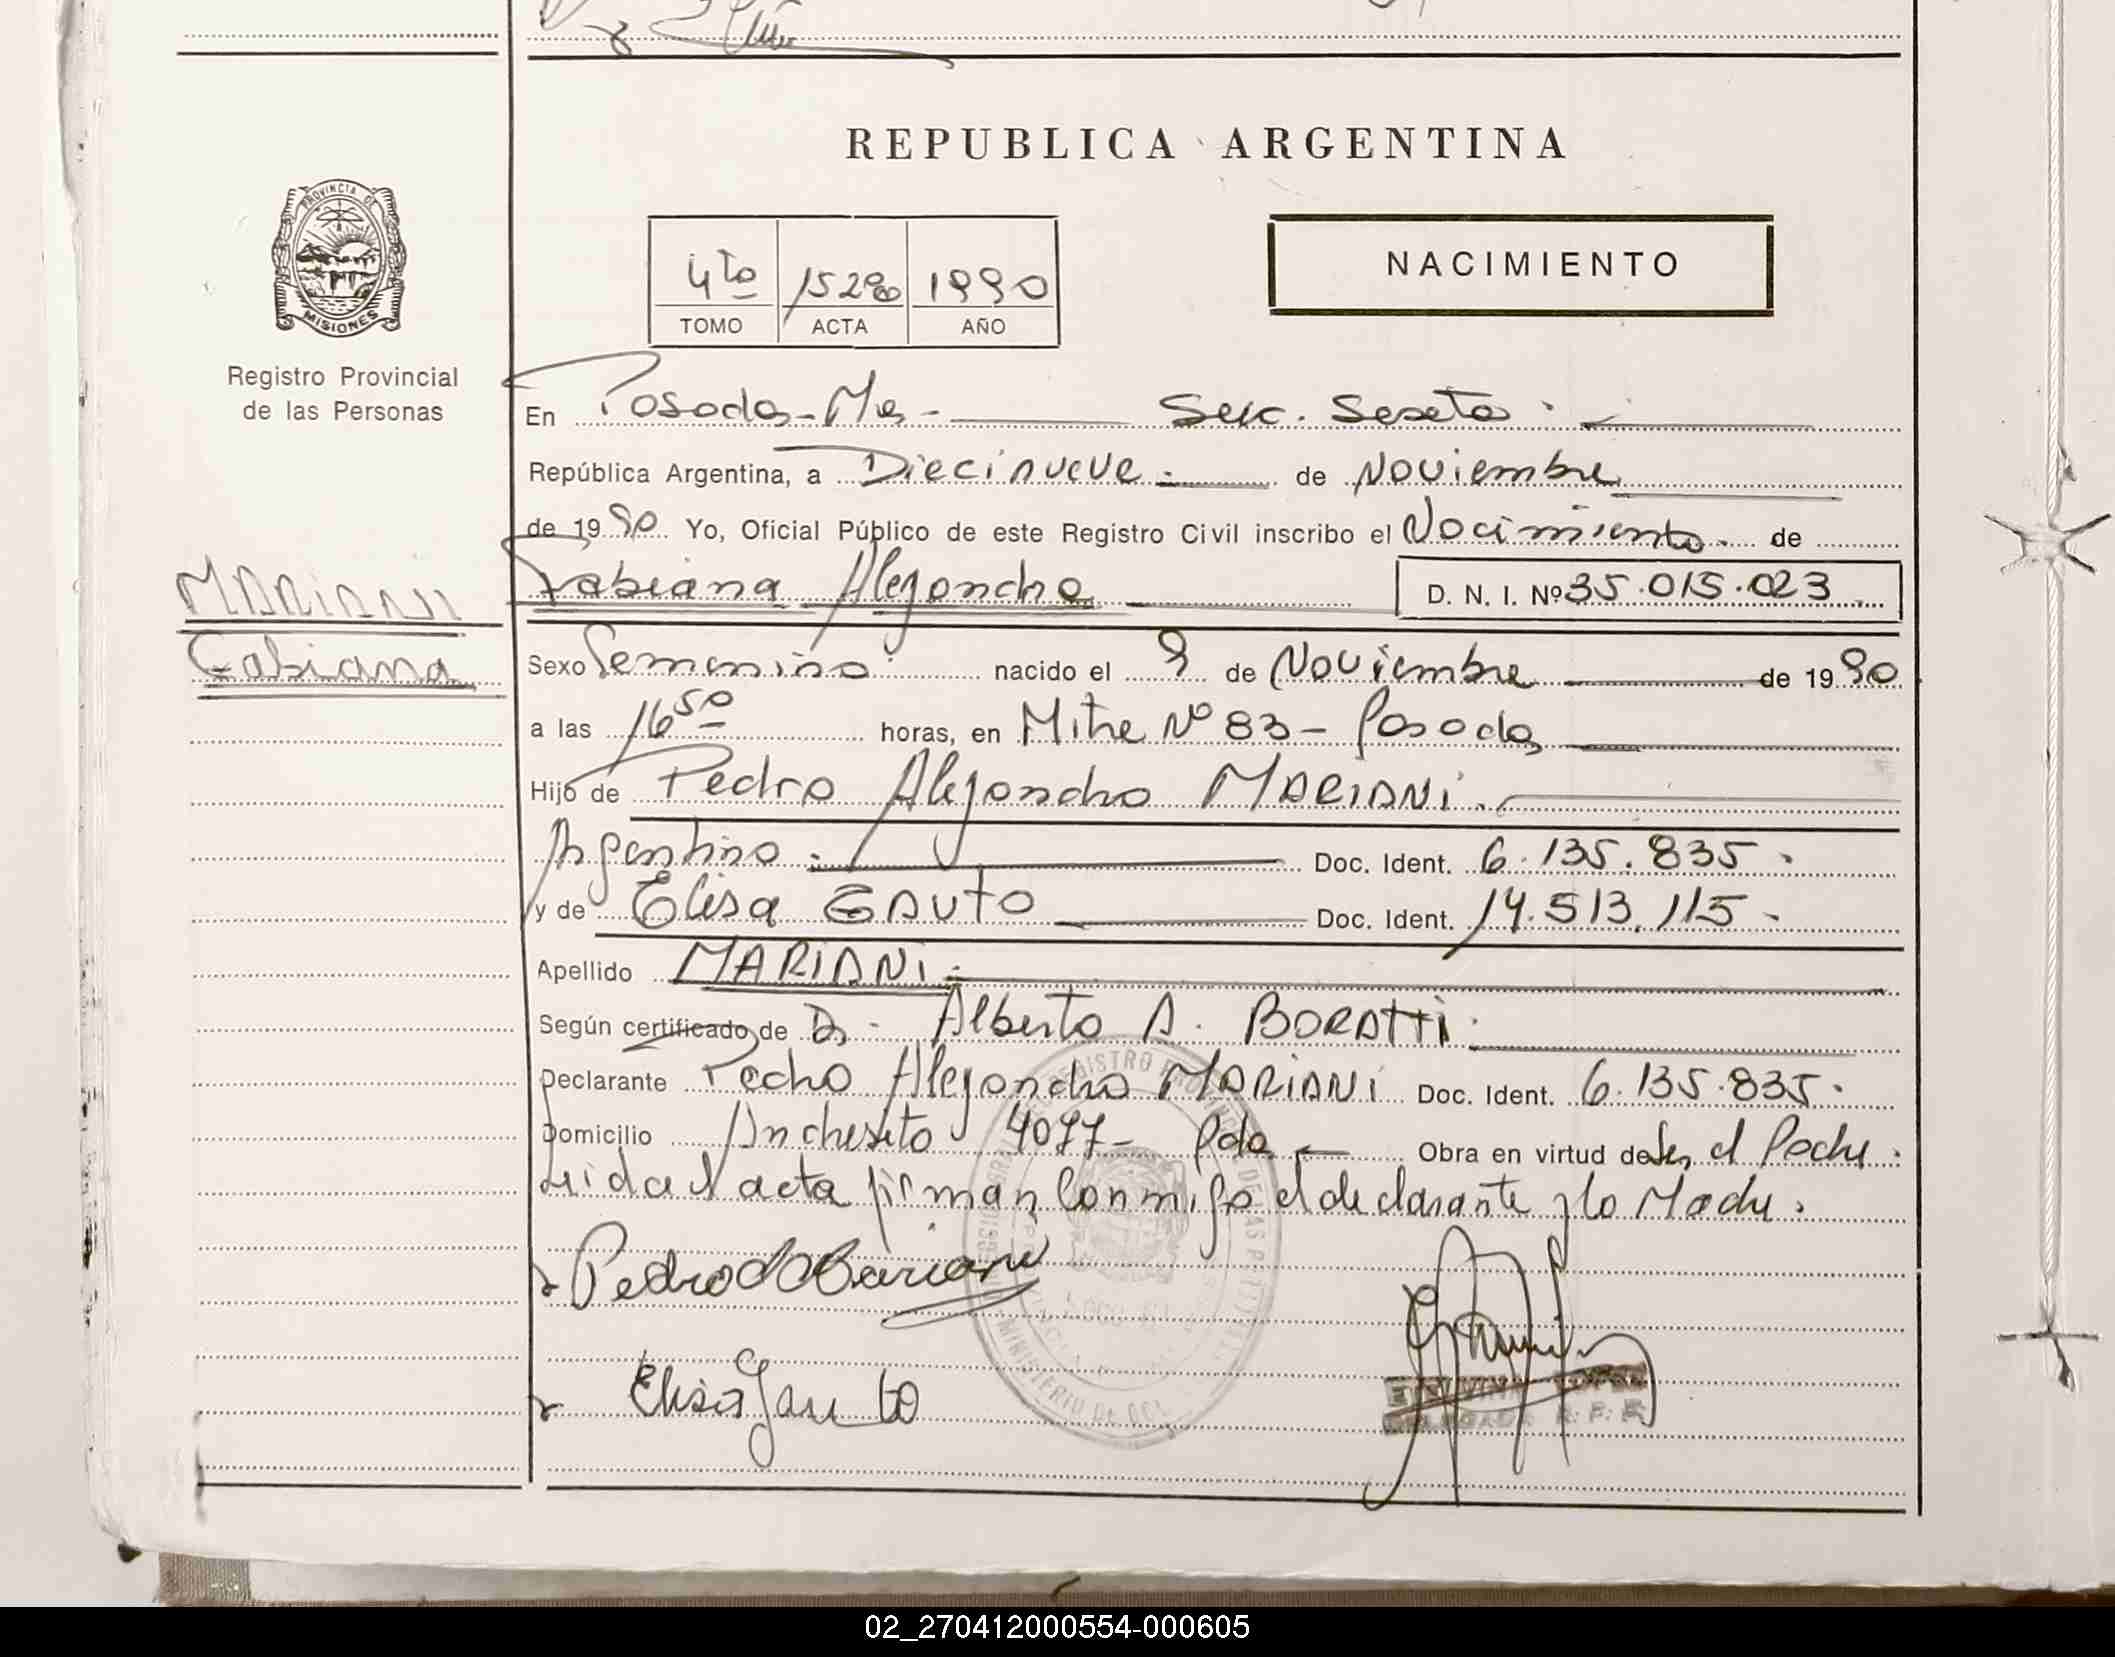 REPUBLICA ARGENTINA
PROVINCIA DE
MISIONES
Registro Provincial
de las Personas
4to 1990
TOMO ACTA AÑO
NACIMIENTO
En Posadas - Mes - Secc. Sexta
República Argentina, a Diecinueve de Noviembre
de 1990 Yo, Oficial Público de este Registro Civil inscribo el Nacimiento de
MARIANI
Fabiana Alejandra D. N. I. Nº 35.015.023
Fabiana
Sexo Femenino nacido el 9 de Noviembre de 1990
a las 16 50 horas, en Mitre Nº 83 - Posadas
Hijo de Pedro Alejandro MARIANI.
Argentino. Doc. Ident. 6.135.835.
y de Elisa GAUTO Doc. Ident. 14.513.115-
Apellido MARIANI.
Según certificado de Dr. Alberto A. BORATTI.
Declarante Pedro Alejandro MARIANI Doc. Ident. 6.135.835.
Domicilio 4077- Pdas Obra en virtud de Ser el Padre.
Leida el acta firman conmigo el declarante y la Madre.
Pedro A Mariani
Elisa Gauto
02_270412000554-000605